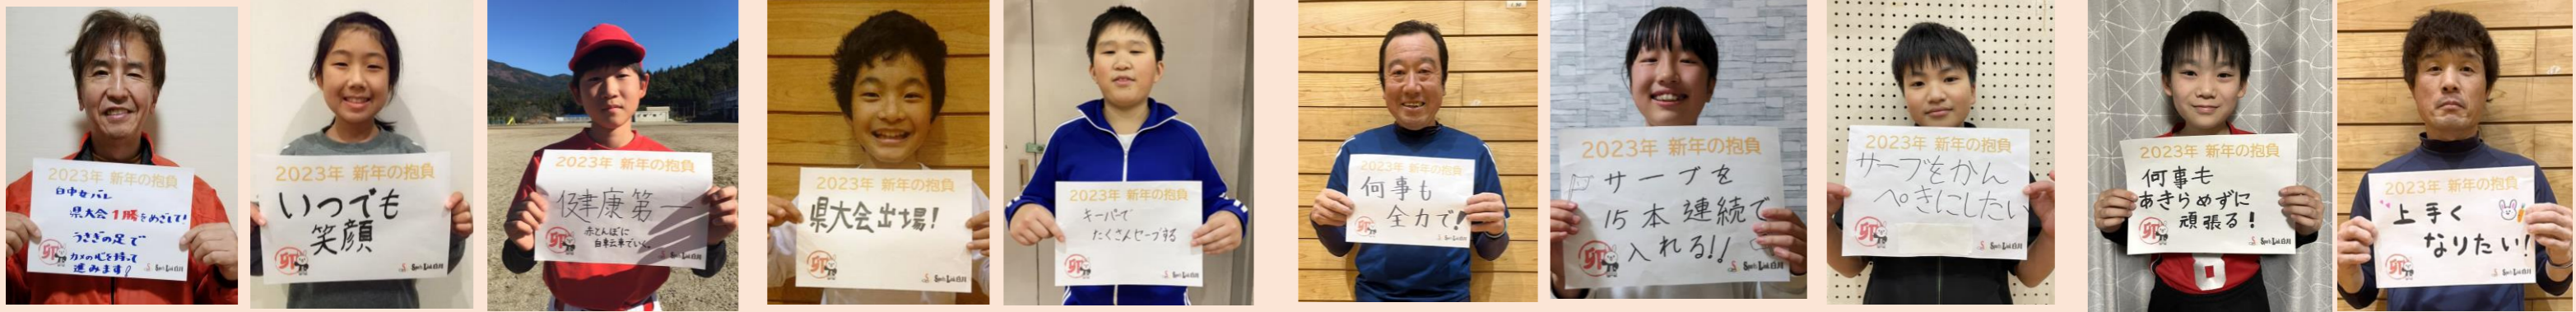 2023年 新年の抱負
白中女バレ
県大会1勝をめざして!
うさぎの足で
カメの心を持って
進みます!
卯
2023年 新年の抱負
いつでも
笑顔
卯
2023年 新年の抱負
健康第一
赤とんぼに
自転車でいく。
卯
2023年 新年の抱負
県大会出場!
卯
2023年 新年の抱負
キーパーで
たくさんセーブする
卯
2023年 新年の抱負
何事も
全力で!
卯
2023年 新年の抱負
サーブを
15本連続で
入れる!!
卯
2023年 新年の抱負
サーブをかん
ぺきにしたい
卯
2023年 新年の抱負
何事も
あきらめずに
頑張る!
卯
8
2023年 新年の抱負
上手く
なりたい!
卯